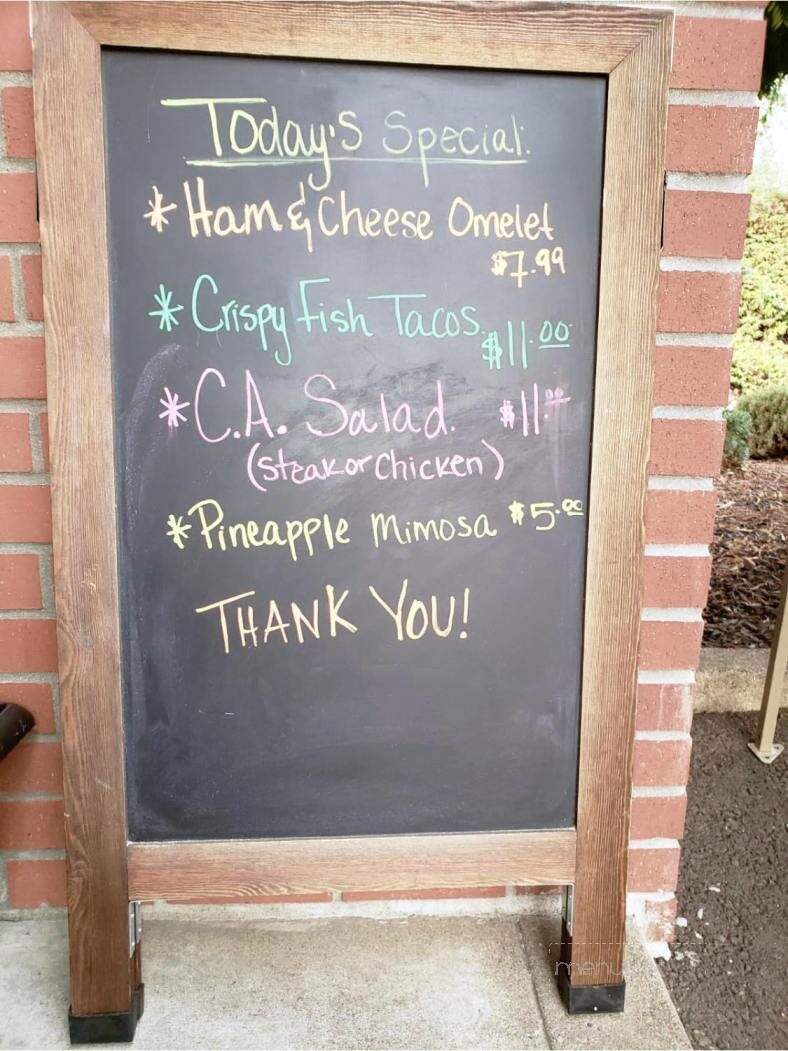 Today's Special:
*Ham & Cheese Omelet
$7.99
*Crispy Fish Tacos $11.00
*C.A. Salad. $11.00
(Steak or Chicken)
*Pineapple Mimosa $5.00
THANK YOU!
menu